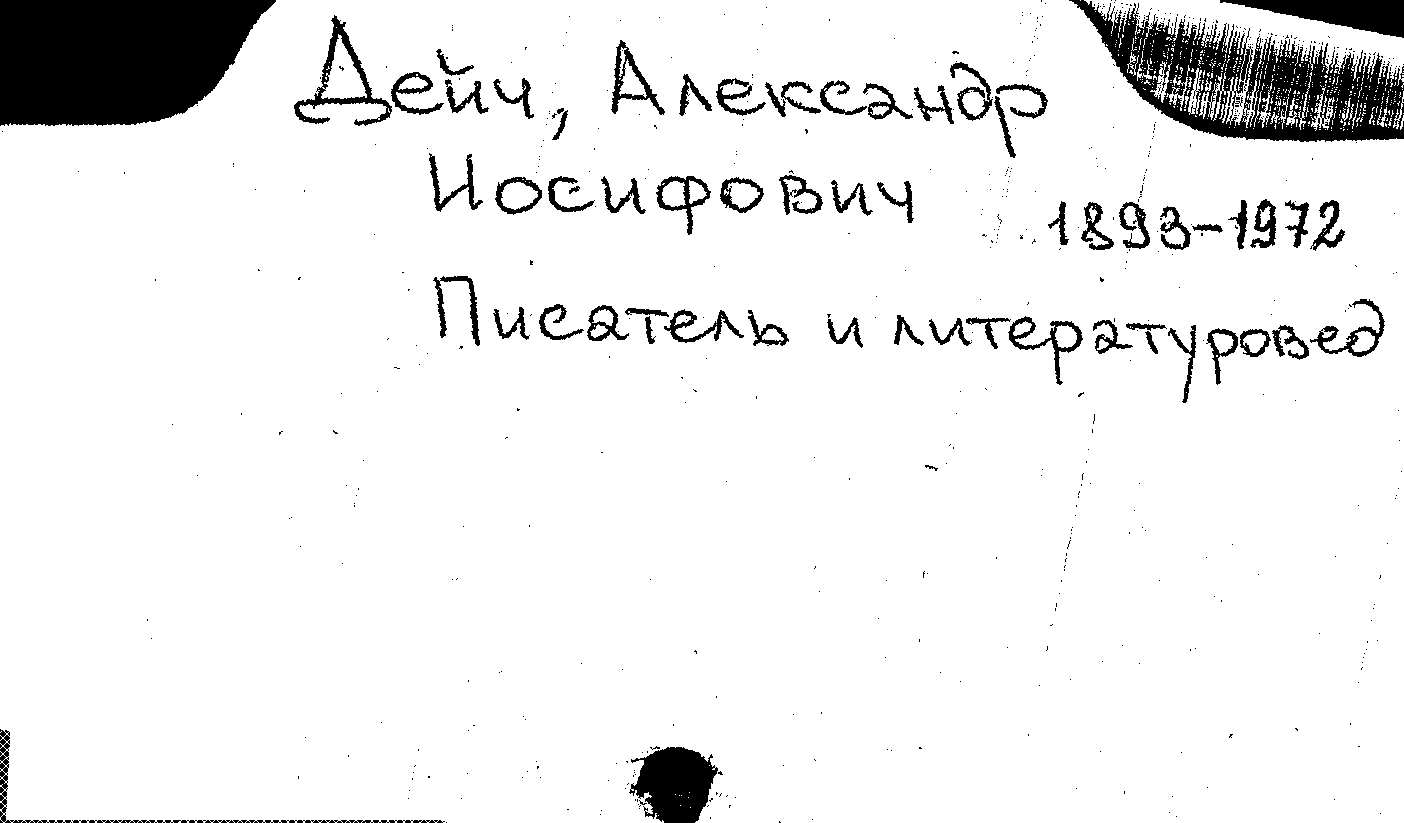 Дейч, Александр
Иосифович
1893-1972
Писатель и литературовед